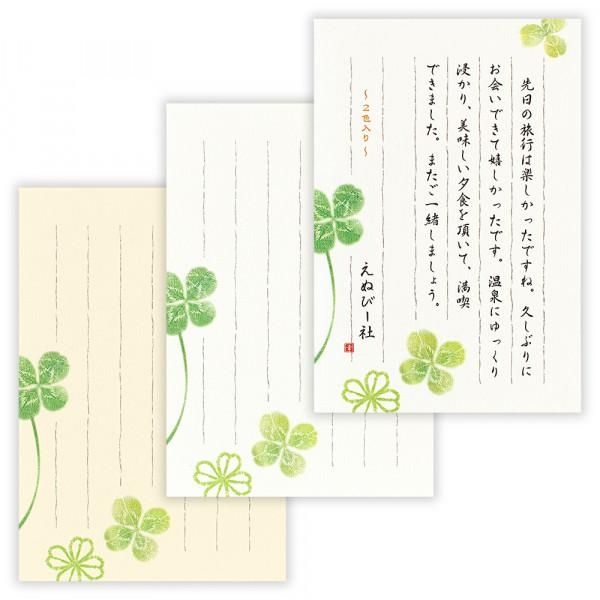 先日の旅行は楽しかったですね。久しぶりに
お会いできて嬉しかったです。温泉にゆっくり
浸かり、美味しい夕食を頂いて、満喫
できました。またご一緒しましょう。
～２色入り～
えぬびー社